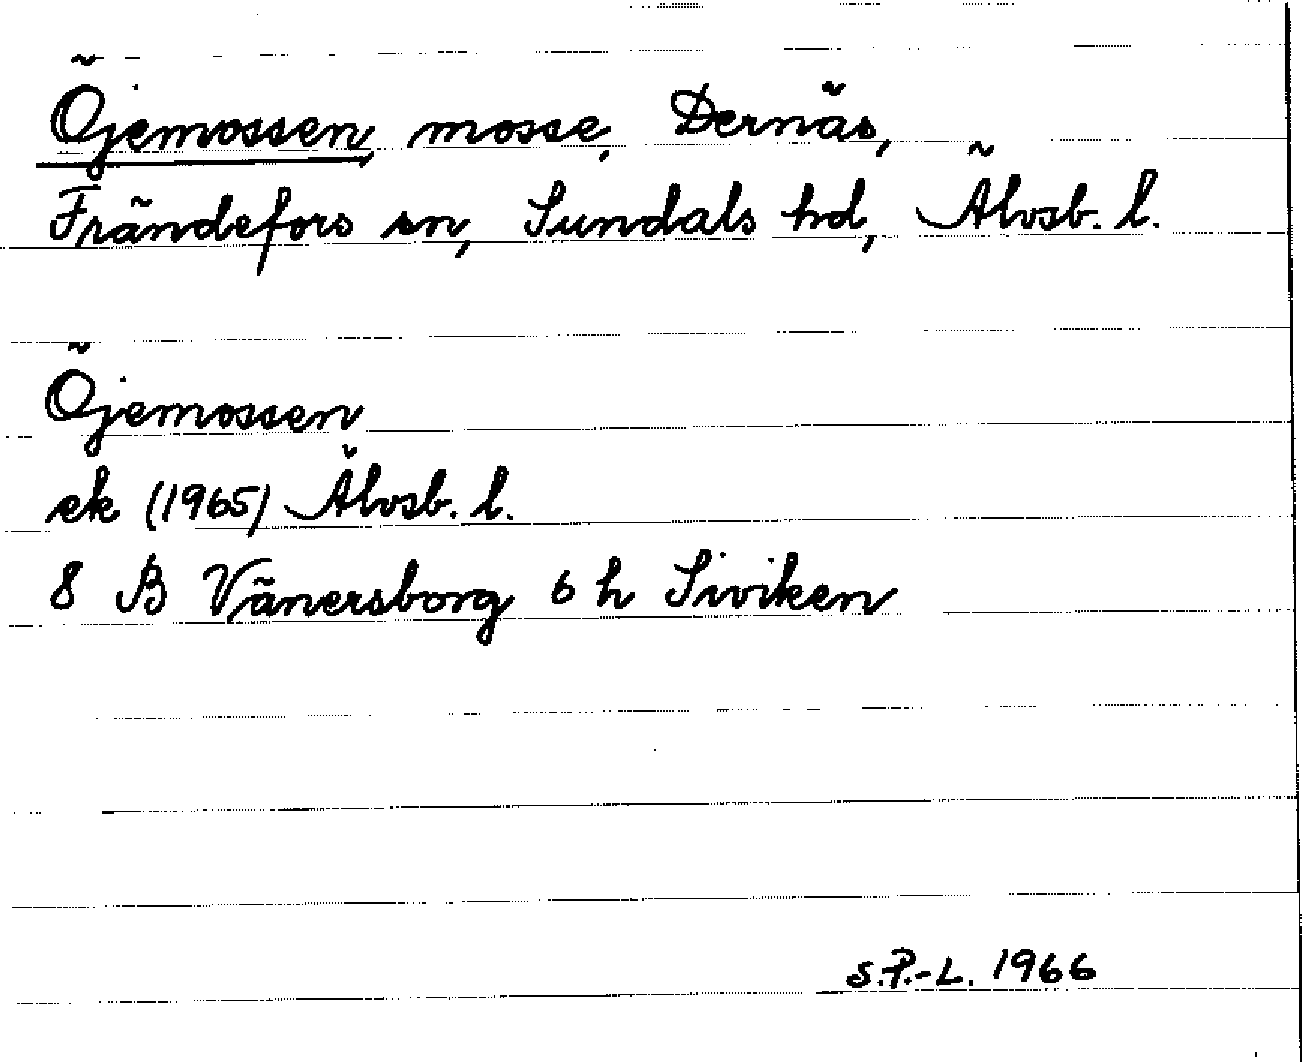 Öjemossen, mosse, Dernäs,
Frändefors sn, Sundals hd, Älvsb. l.
Öjemossen
ek (1965) Älvsb. l.
8 B Vänersborg 6 h Siviken
S.P.-L. 1966